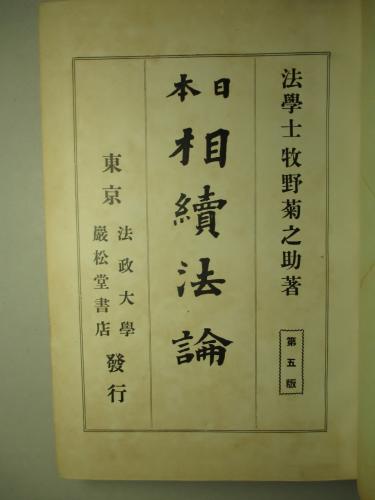 法學士牧野菊之助著
第五版
日本
相續法論
東京
法政大學
巖松堂書店
發行